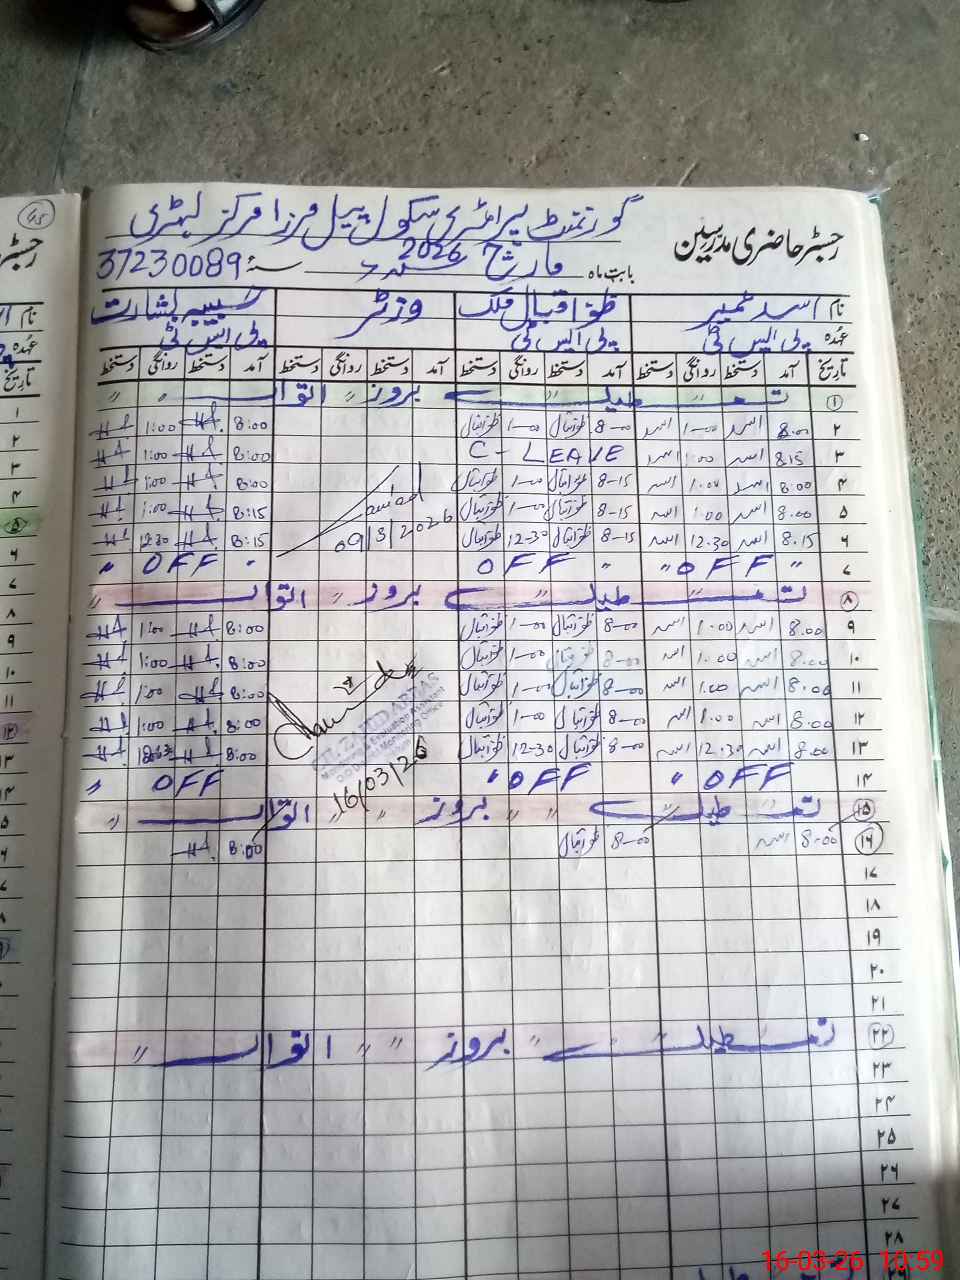 گورنمنٹ پرائمری سکول پیپل مرزا مرکز لہڑی
رجسٹر حاضری مدرسین
بابت ماہ مارچ 2026 سنہ 37230089
نام اسد ظفر اقبال ملک وزٹر بشارت
عہدہ پی ایس ٹی پی ایس ٹی پی ایس ٹی
تاریخ آمد دستخط روانگی دستخط آمد دستخط روانگی دستخط آمد روانگی دستخط آمد دستخط روانگی دستخط
۱ تعطیل بروز " اتوار "
۲ 8.00 اسد 1-00 اسد 8-00 ظفر اقبال 1-00 ظفر اقبال 8:00 1:00
۳ 8.15 اسد 1.00 اسد C-LEAVE 8:00 1:00
۴ 8.00 اسد 1.00 اسد 8-15 ظفر اقبال 1-00 ظفر اقبال 8:00 1:00
۵ 8.00 اسد 1.00 اسد 8-15 ظفر اقبال 1-00 ظفر اقبال 8:15 1:00
۶ 8.15 اسد 12.30 اسد 8-15 ظفر اقبال 12-30 ظفر اقبال 09/3/2026 8:15 12:30
۷ " OFF " " OFF " OFF "
۸ تعطیل بروز " اتوار "
۹ 8.00 اسد 1.00 اسد 8-00 ظفر اقبال 1-00 ظفر اقبال 8:00 1:00
۱۰ 8.00 اسد 1.00 اسد 8-00 ظفر اقبال 1-00 ظفر اقبال 8:00 1:00
۱۱ 8.00 اسد 1.00 اسد 8-00 ظفر اقبال 1-00 ظفر اقبال 8:00 1:00
۱۲ 8.00 اسد 1.00 اسد 8-00 ظفر اقبال 1-00 ظفر اقبال 8:00 1:00
۱۳ 8.00 اسد 12.30 اسد 8-00 ظفر اقبال 12-30 ظفر اقبال 8:00
16/03/26
۱۴ OFF " OFF " OFF "
۱۵ تعطیل " " بروز " " اتوار "
۱۶ 8.00 اسد 8-00 ظفر اقبال 8:00
۱۷
۱۸
۱۹
۲۰
۲۱
۲۲ تعطیل " بروز " " اتوار "
۲۳
۲۴
۲۵
۲۶
۲۷
۲۸
45
16-03-26 10:59